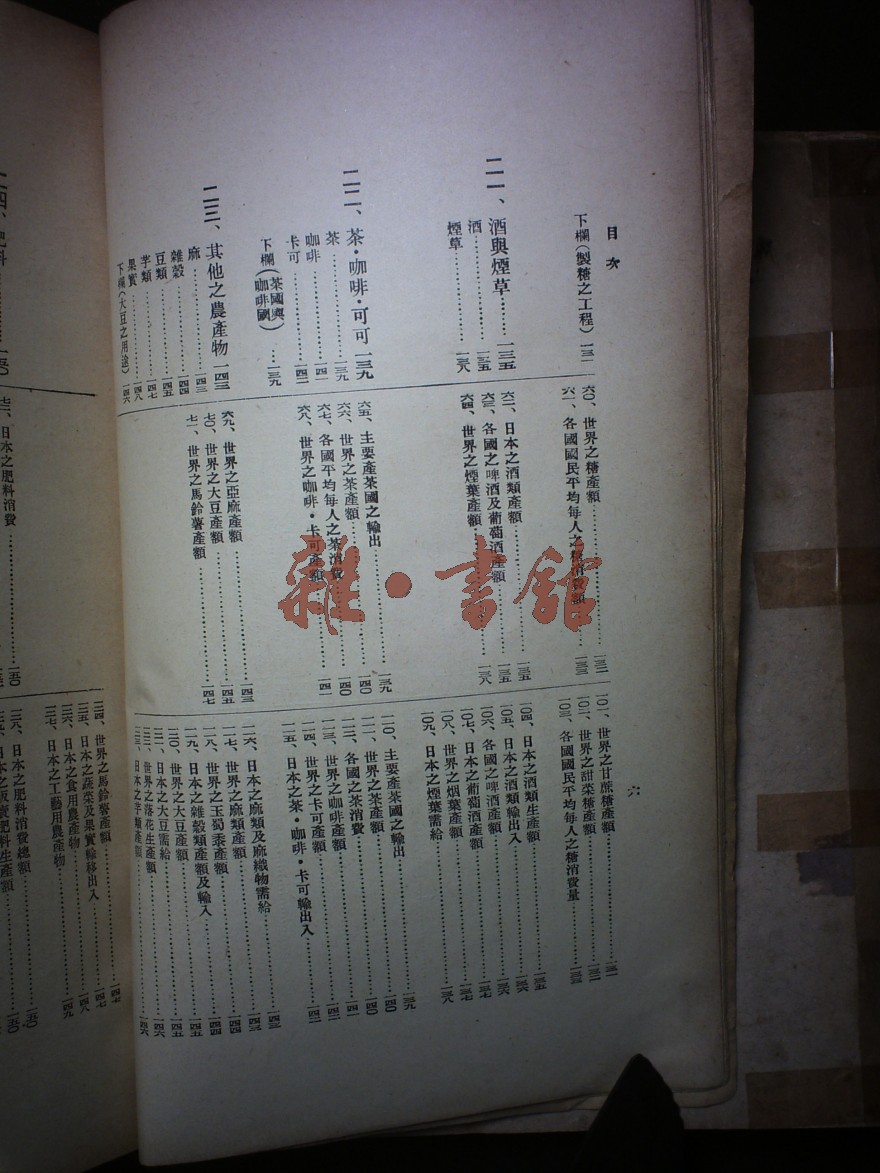 目次
下欄（製糖之工程）一三一
二一、酒與煙草……一三五
酒……一三五
煙草……一三八
二二、茶・咖啡・可可一三九
茶……一三九
咖啡……一四一
卡可……一四二
下欄（茶國與咖啡國）……一三九
二三、其他之農產物一四三
麻……一四三
雜穀……一四四
豆類……一四五
芋類……一四七
果實……一四八
下欄（大豆之用途）一四六
六〇、世界之糖產額……一三一
六一、各國國民平均每人之糖消費額……一三三
六二、日本之酒類產額……一三五
六三、各國之啤酒及葡萄酒產額……一三五
六四、世界之煙葉產額……一三八
六五、主要產茶國之輸出……一三九
六六、世界之茶產額……一四〇
六七、各國平均每人之茶消費……一四〇
六八、世界之咖啡・卡可產額……一四一
六九、世界之亞麻產額……一四三
七〇、世界之大豆產額……一四五
七一、世界之馬鈴薯產額……一四七
一〇一、世界之甘蔗糖產額……一三一
一〇二、世界之甜菜糖產額……一三二
一〇三、各國國民平均每人之糖消費量……一三三
一〇四、日本之酒類生產額……一三五
一〇五、日本之酒類輸出入……一三六
一〇六、各國之啤酒產額……一三七
一〇七、日本之葡萄酒產額……一三七
一〇八、世界之烟葉產額……一三八
一〇九、日本之煙葉需給……一三八
一一〇、主要產茶國之輸出……一三九
一一一、世界之茶產額……一四〇
一一二、各國之茶消費……一四〇
一一三、世界之咖啡產額……一四一
一一四、世界之卡可產額……一四二
一一五、日本之茶・咖啡・卡可輸出入……一四二
一一六、日本之麻類及麻織物需給……一四三
一一七、世界之麻類產額……一四三
一一八、世界之玉蜀黍產額……一四四
一一九、日本之雜穀類產額及輸入……一四四
一二〇、世界之大豆產額……一四五
一二一、日本之大豆需給……一四五
一二二、世界之落花生產額……一四六
一二三、日本之芋類產額……一四六
六
二四、肥料……一五〇
七二、日本之肥料消費……一五〇
一二四、世界之馬鈴薯產額……一四七
一二五、日本之蔬菜及果實輸移出入……一四七
一二六、日本之食用農產物……一四八
一二七、日本之工藝用農產物……一四九
一二八、日本之肥料消費總額……一五〇
一二九、日本之販賣肥料生產額……一五〇
雜・書館